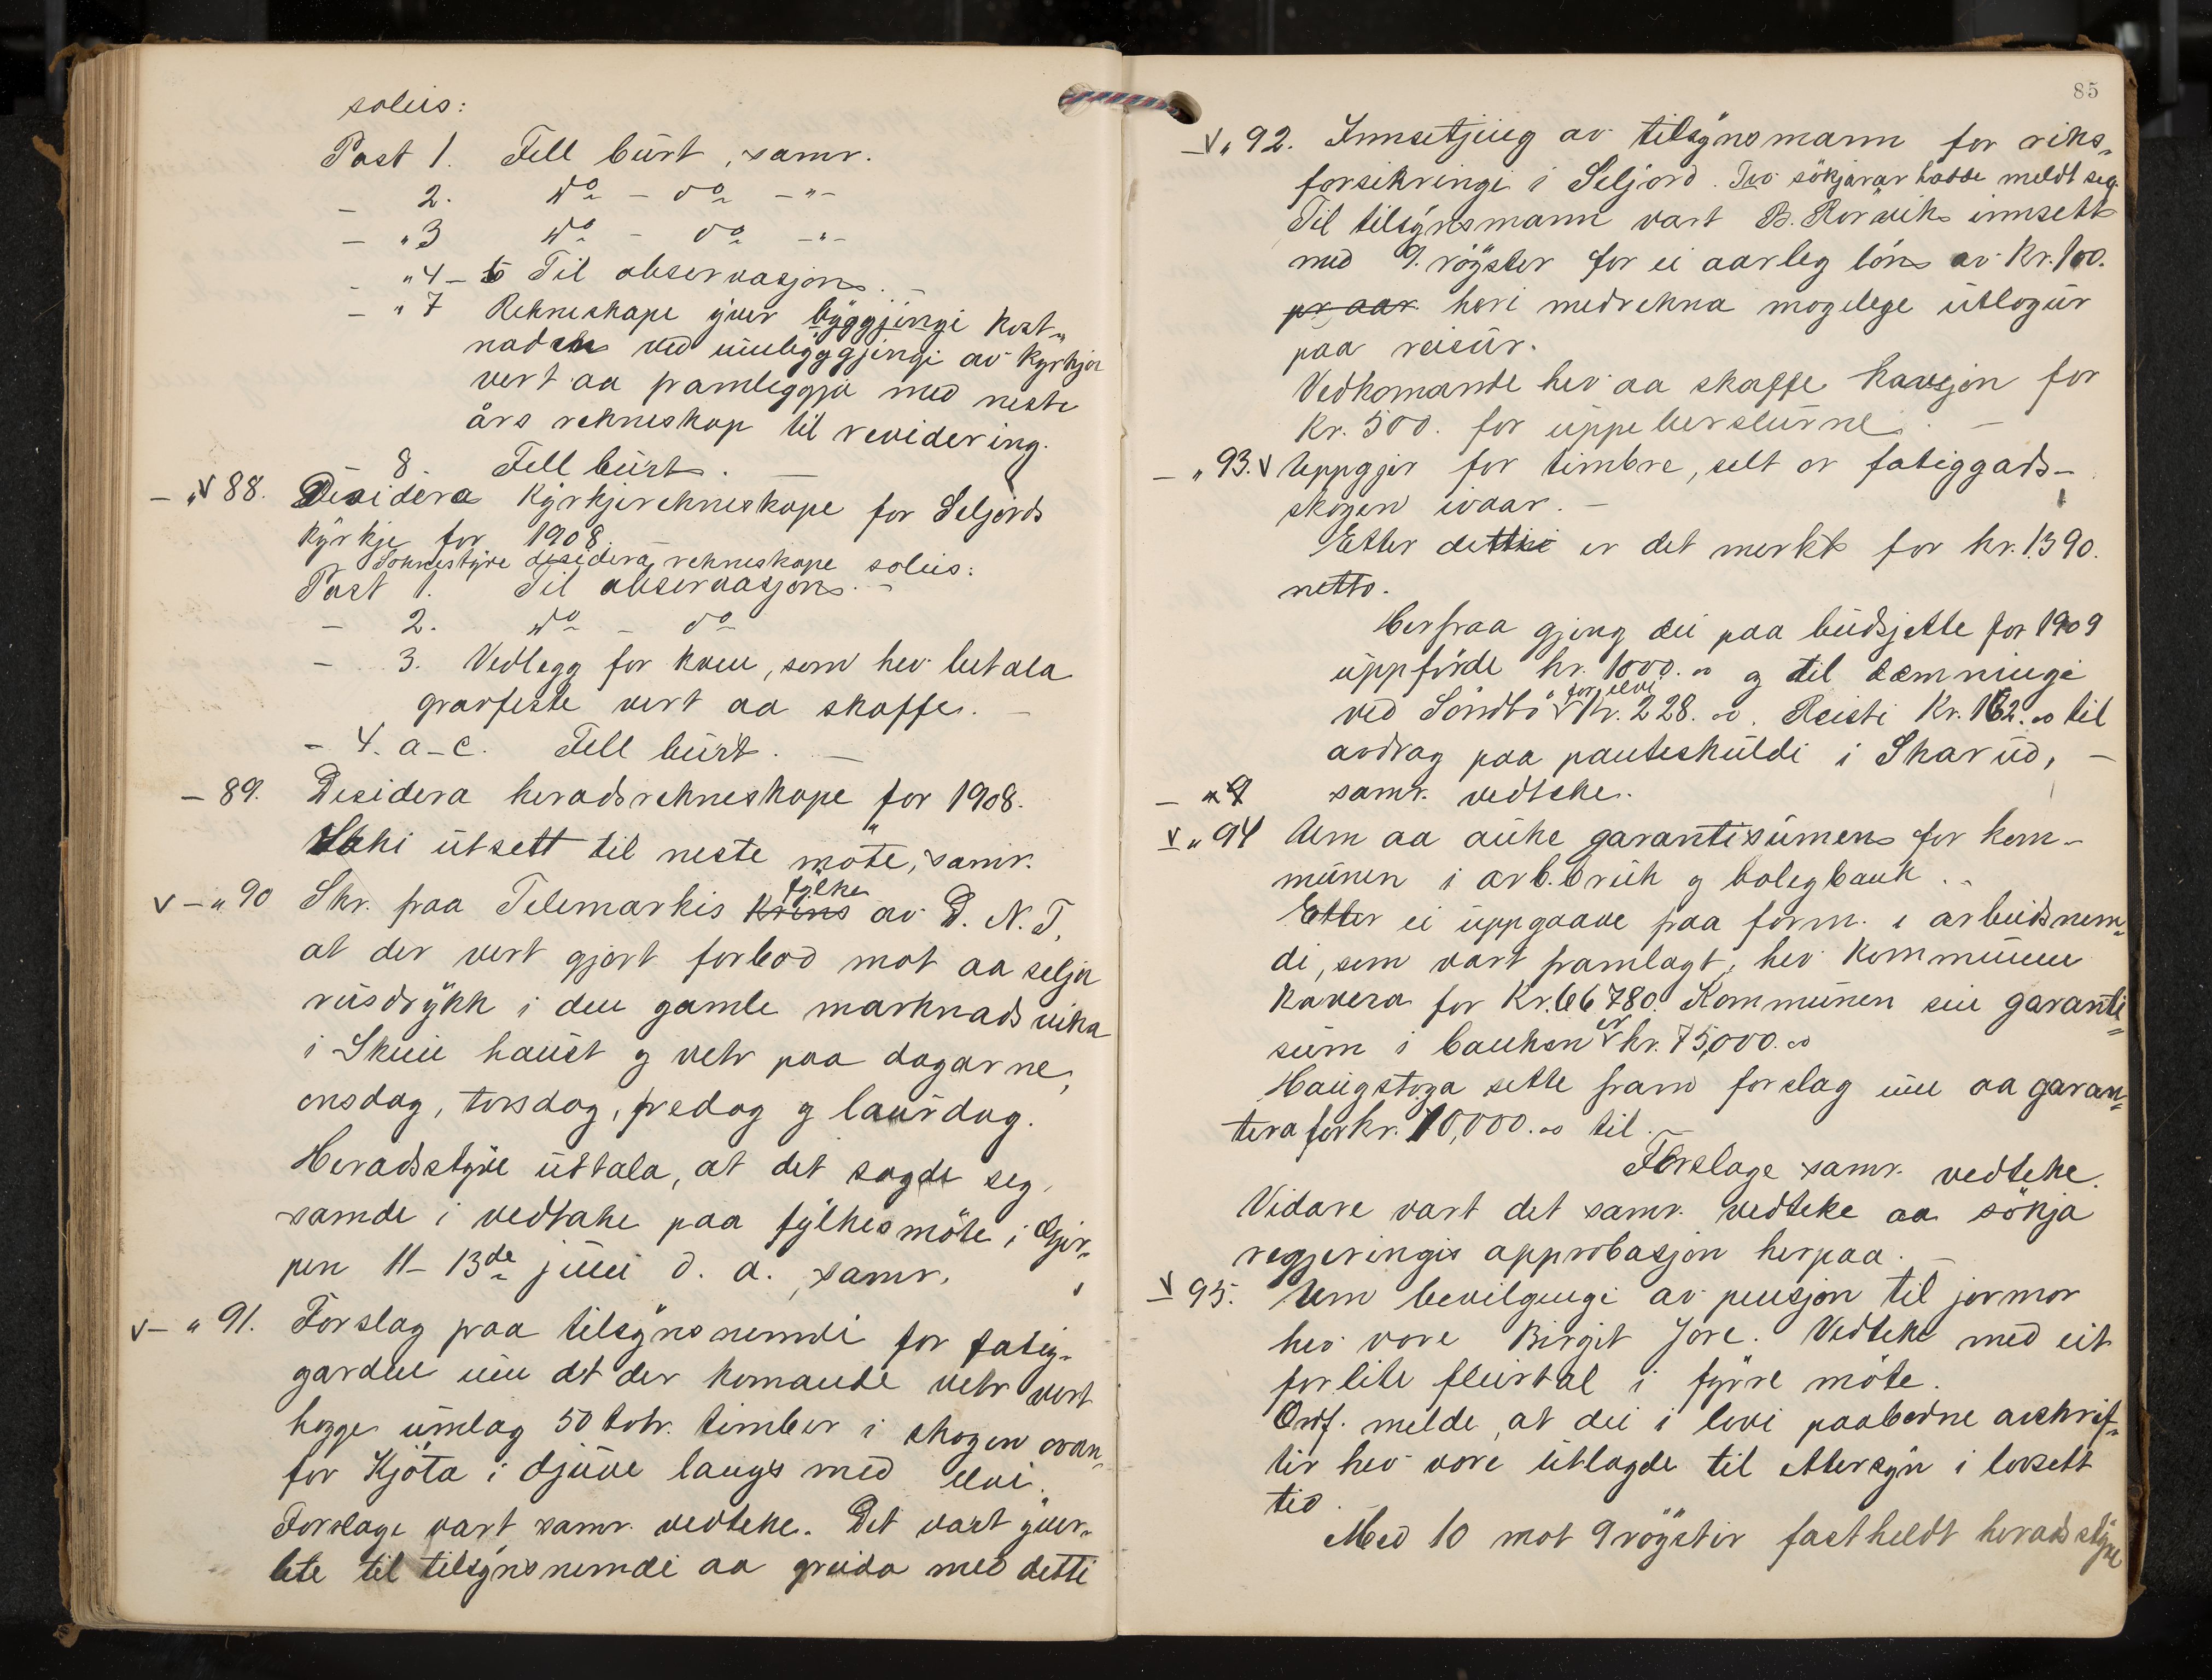 soleis:
Post 1. Fell burt, samr.
- 2. do - do -"-
- " 3 do - do -"-
- " 4 - 5 Til observasjon. -
- " 7 Rekneskape yver byggjingi kost-
naden ved umbyggjingi av kyrkja
vert aa framleggja med neste
års rekneskap til revidering.
8. Fell burt. -
- " v 88. Desidera kyrkjerekneskape for Seljords
kyrkje for 1908.
Soknestyre desidera rekneskape soleis:
Post 1. Til observasjon. -
- 2. do - do
- 3. Vedlegg for kven, som hev betala
gravfeste vert aa skaffe. -
- 4. a-c. Fell burt. -
- 89. Desidera heradsrekneskape for 1908.
Saki utsett til neste møte, samr.
v - " 90 Skr. fraa Telemarkis krins fylke av D. N. T,
at der vert gjort forbod mot aa selja
rusdrykk i den gamle marknadsvika
i Skien haust og vetr paa dagarne,
onsdag, torsdag, fredag og laurdag.
Heradsstyre uttala, at det sagde seg
samde i vedtake paa fylkesmöte i Gjer-
pen 11-13de juni d. a., samr.
v - " 91. Forslag fraa tilsynsnemdi for fatig-
garden um at der komande vetr vert
hogge umlag 50 tolv. timber i skogen ovan-
for Kjöta i Djuve langs med elvi.
Forslage vart samr. vedteke. Det vart yver-
lete til tilsynsnemdi aa greida med detti
85
v " 92. Innsetjing av tilsynsmann for riks-
forsikringi i Seljord. Tvo sökjarar hadde meldt seg.
Til tilsynsmann vart B. Rorvik innsett
med 9. röyster for ei aarleg lön av Kr. 100.
pr aar heri medrekna mogelege utlogur
paa reisur.
Vedkomande hev aa skaffe kavsjon for
Kr. 500. for uppeberslurne. -
- " 93. v Uppgjer for timbre, selt or fatiggards-
skogen ivaar. -
Etter detti er det merkt for kr. 1390.
netto.
Herfraa gjeng dei paa budsjette for 1909
uppförde kr. 1000.00 og til dæmningi
ved Söndbö for elvi Kr. 228.00. Resti Kr. 162.00 til
avdrag paa panteskuldi i Skarud, -
samr. vedteke.
v " 94 Um aa auke garantisumen for kom-
munen i arb.bruk og boligbank. -
Etter ei uppgaave fraa form. i arbeidsnem-
di, som vart framlagt, hev kommunen
kavera for Kr. 66780. Kommunen sin garanti-
sum i banken er kr. 75,000.00
Haugstoga sette fram forslag um aa garan-
tera for kr. 10,000.00 til.
Forslage samr. vedteke.
Vidare vart det samr. vedteke aa sökja
regjeringis approbasjon herpaa. -
v 95. Um bevilgningi av pensjon til jormor
hev vore Birgit Jore. Vedteke med eit
forlite fleirtal i fyrre möte.
Ordf. melde, at dei i lovi paabodne avskrif-
tir hev vore utlagde til ettersyn i lovsett
tid.
Med 10 mot 9 röystir fastheldt heradsstyre